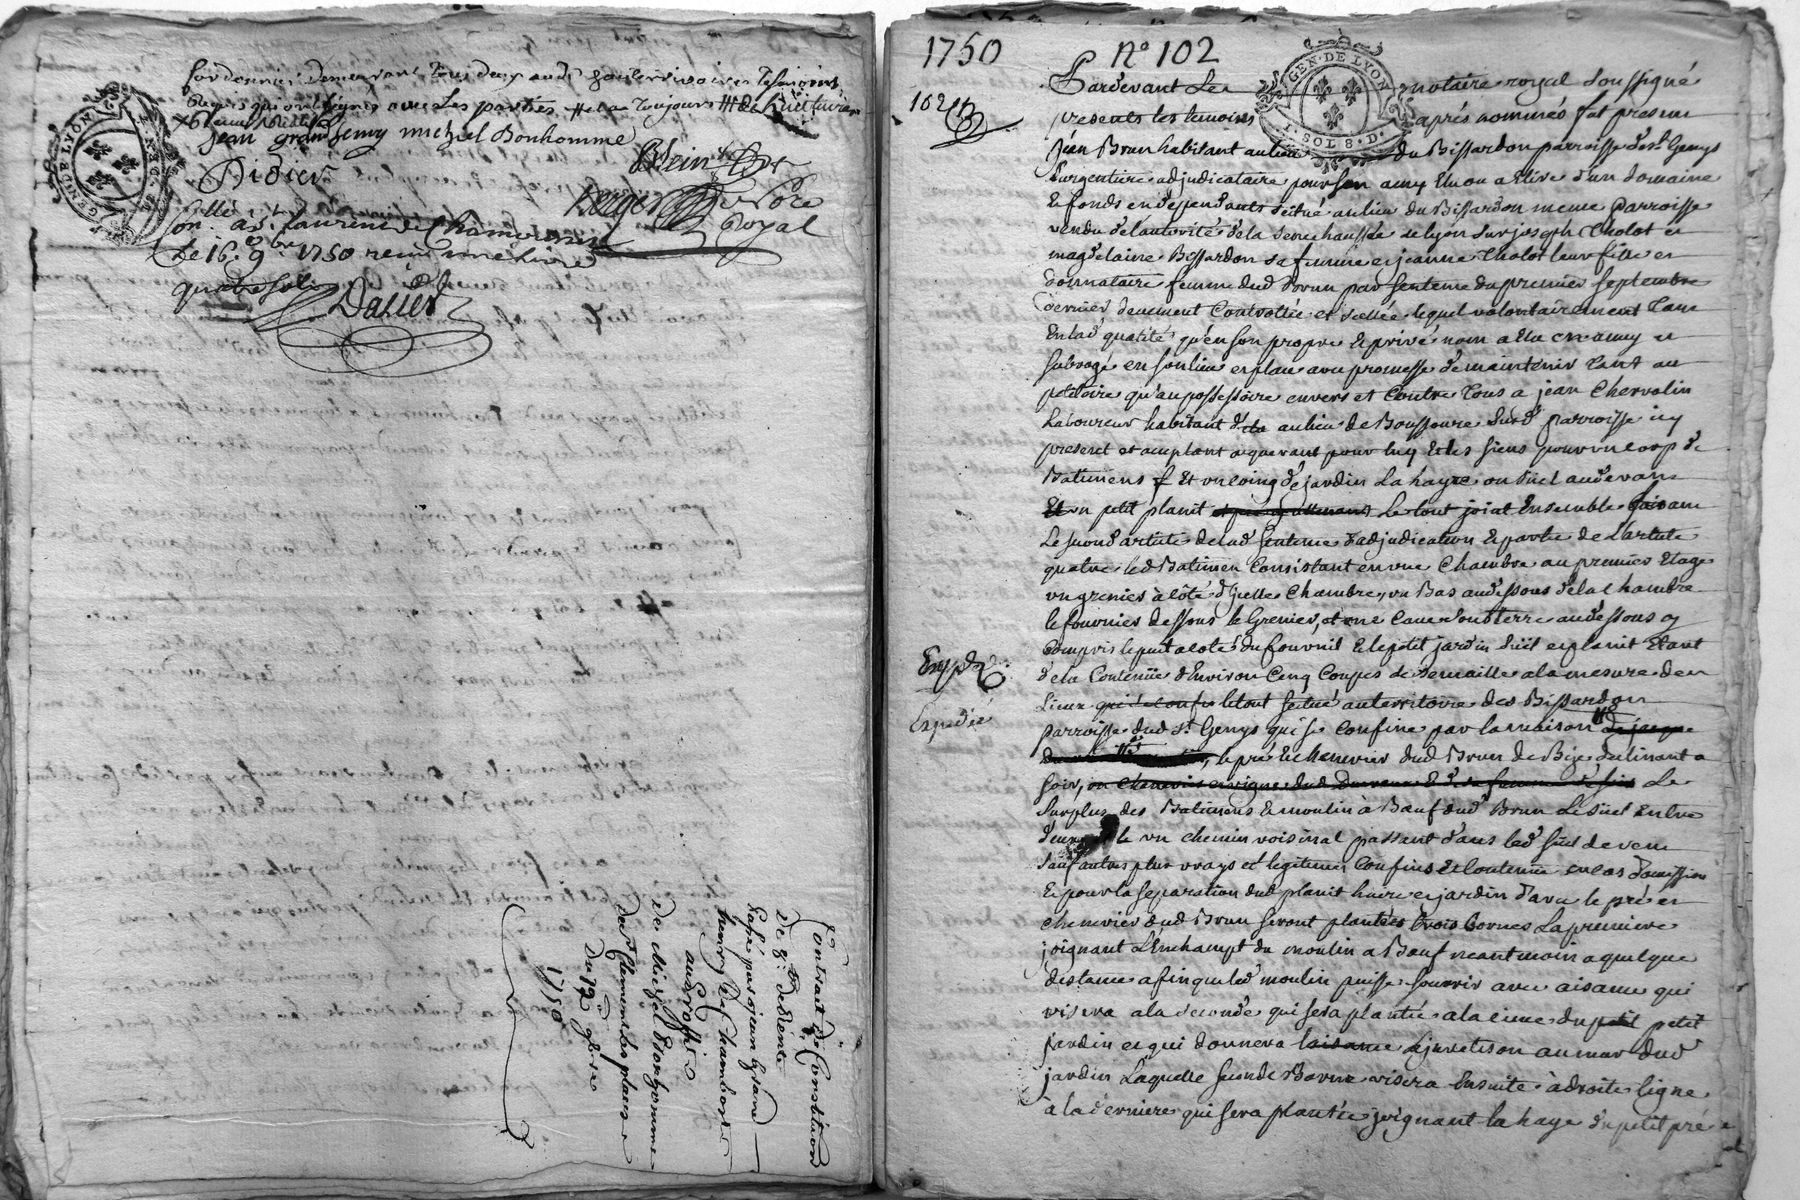 Cordonnier demeurant tous deux aud
requis qui ont signé avec les parties
jean grand Jemy michel Bonhomme
Didier
Berger
Royal
GEN. DE LYON
a st. laurent de Chamousset
Le 16e. 9bre 1750 reçu une livre
quatre sols
Dalier
Contrait de Constitution
De 8lt de Rente
Passé par jean
henry
au proffit
De Michel Bonhomme
De st Clement les places
Du 12 9bre
1750
1750
N° 102
102
GEN. DE LYON
1. SOL 8. D.
Pardevant Le notaire royal Soussigné
presents les temoins aprés nommés fut presen
Jean Brun habitant au lieu du Bissardon parroisse de st Genys
Largentiere adjudicataire pour son amy Elu ou a Elire d'un domaine
& fonds en dependants scitué au lieu du Bissardon meme parroisse
vendu de l'autorité de la Senechaussée de lyon sur joseph Cholot et
magdelaine Bissardon sa femme et jeanne Cholot leur fille et
donnataire femme dud Brun par Sentence du premier Septembre
dernier deuement Controllée et scellée lequel volontairement tant
En lad qualité qu'en son propre & privé nom a Elu en amy et
Subrogé en son lieu et place avec promesse de maintenir tant au
petitoire qu'au possessoire envers et Contre tous a jean Chervolin
Laboureur habitant au lieu de Boussoure Susd parroisse icy
present et acceptant acquerant pour luy & les siens pour un corp de
Batimens Et un coing de jardin La haye ou suel au devant
Et un petit planit Le tout joint Ensemble faisant
Le second article de lad Sentence d'adjudication & partie de L'article
quatre led Batimen Consistant en une Chambre au premier Etage
un grenier à côté d'ycelle Chambre, un Bas au dessous de la Chambre
le fournier dessous le Grenier, et une Cave sous terre au dessous y
Compris le puit a coté du fournil & le petit jardin suel et planit Etant
de la Contenüe d'Environ Cinq Coupes de semaille a la mesure de ce
Lieux le tout scitué au territoire des Bissardon
Expd
Expedié
parroisse dud st Genys qui se Confine par la maison
le pré & chenevier dud Brun de Bize declinant a
soir, Le
Surplus des Batimens & moulin à Bœuf dud Brun Le suel Entre
deux & un chemin voisinal passant dans led suel de vent
Sauf autres plus vrays et legitimes Confins & Contenüe en cas d'omission
& pour la separation dud planit haire et jardin d'avec le pré et
chenevier dud Brun seront plantées trois Bornes La premiere
joignant L'Enchampt du moulin a Bœuf neantmoin a quelque
distance afin que led moulin puisse s'ouvrir avec aisance qui
visera a la seconde qui sera plantée a la cime du petit petit
jardin et qui donnera au mur dud
jardin Laquelle seconde Borne visera Ensuite à droite ligne
à la derniere qui sera plantée joignant la haye du petit pré